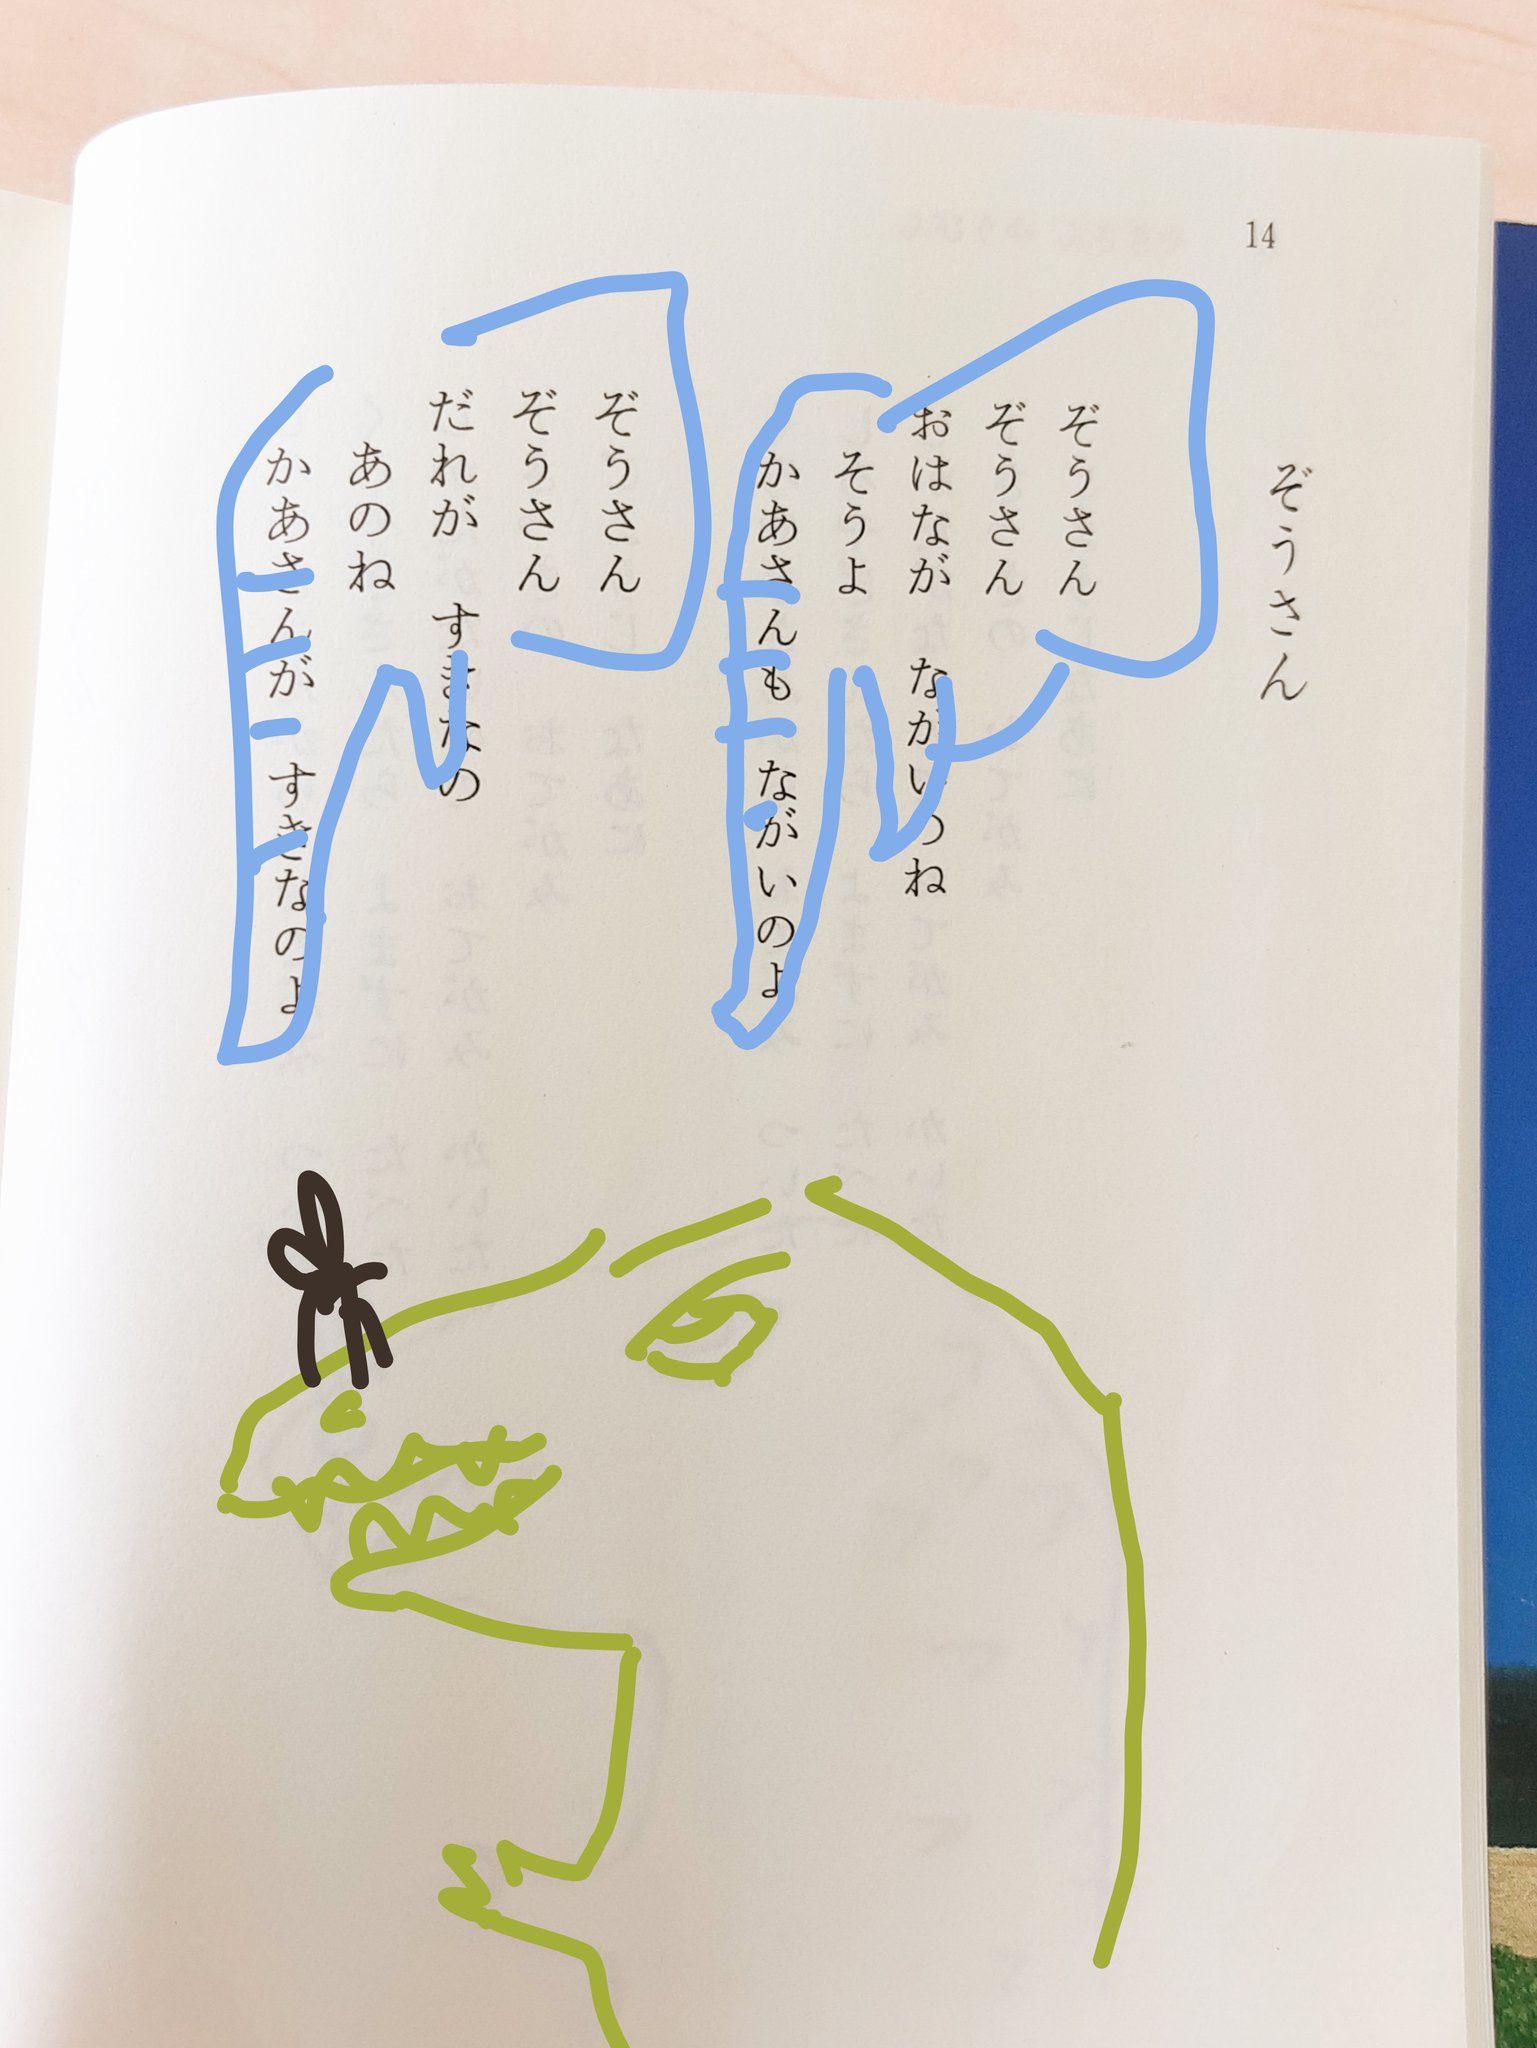 14
ぞうさん
ぞうさん
ぞうさん
おはなが　ながいのね
そうよ
かあさんも　ながいのよ
ぞうさん
ぞうさん
だれが　すきなの
あのね
かあさんが　すきなのよ